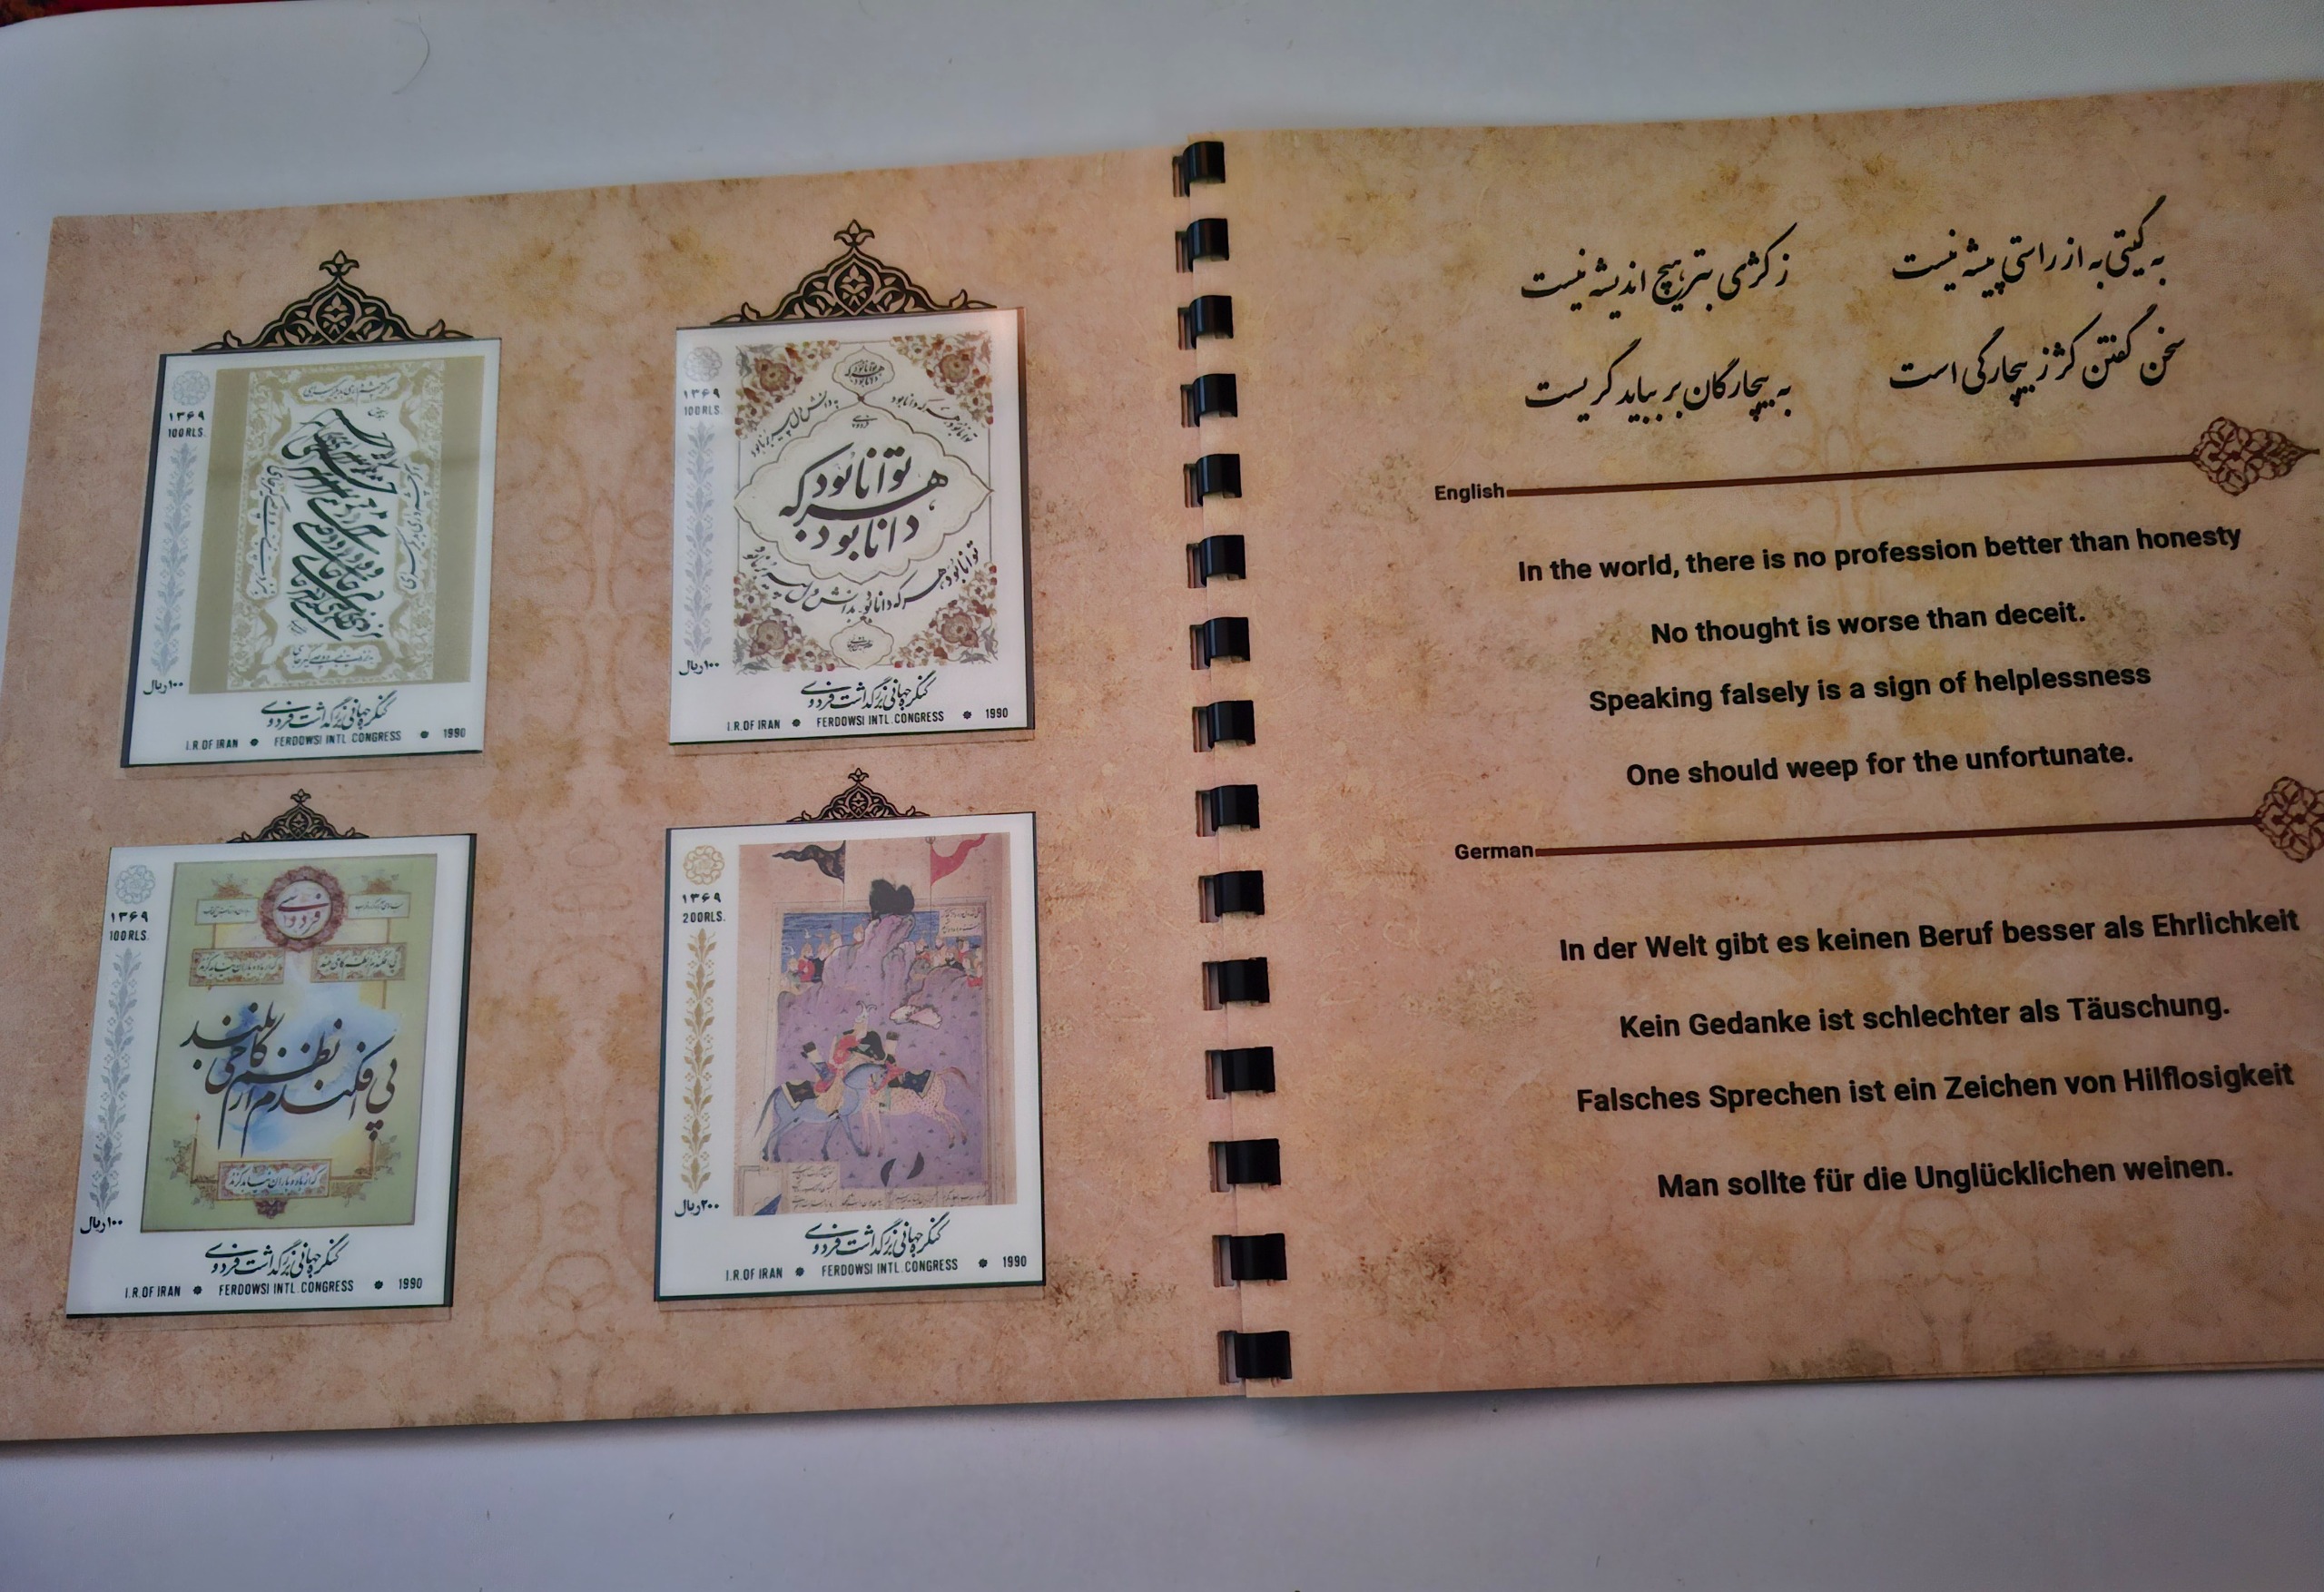 ۱۳۶۹
100RLS.
۱۰۰ریال
کنگره جهانی بزرگداشت فردوسی
I.R.OF IRAN FERDOWSI INTL.CONGRESS 1990
۱۳۶۹
100RLS.
توانا بود
هر که
دانا بود
توانا بود هر که دانا بود
۱۰۰ریال
کنگره جهانی بزرگداشت فردوسی
I.R.OF IRAN FERDOWSI INTL.CONGRESS 1990
۱۳۶۹
100RLS.
فردوسی
پی افکندم از نظم کاخی بلند
که از باد و باران نیابد گزند
۱۰۰ریال
کنگره جهانی بزرگداشت فردوسی
I.R.OF IRAN FERDOWSI INTL.CONGRESS 1990
۱۳۶۹
200RLS.
۲۰۰ریال
کنگره جهانی بزرگداشت فردوسی
I.R.OF IRAN FERDOWSI INTL.CONGRESS 1990
به گیتی به از راستی پیشه نیست ز کژی بتر هیچ اندیشه نیست
سخن گفتن کژ ز بیچارگی است به بیچارگان بر بباید گریست
English
In the world, there is no profession better than honesty
No thought is worse than deceit.
Speaking falsely is a sign of helplessness
One should weep for the unfortunate.
German
In der Welt gibt es keinen Beruf besser als Ehrlichkeit
Kein Gedanke ist schlechter als Täuschung.
Falsches Sprechen ist ein Zeichen von Hilflosigkeit
Man sollte für die Unglücklichen weinen.